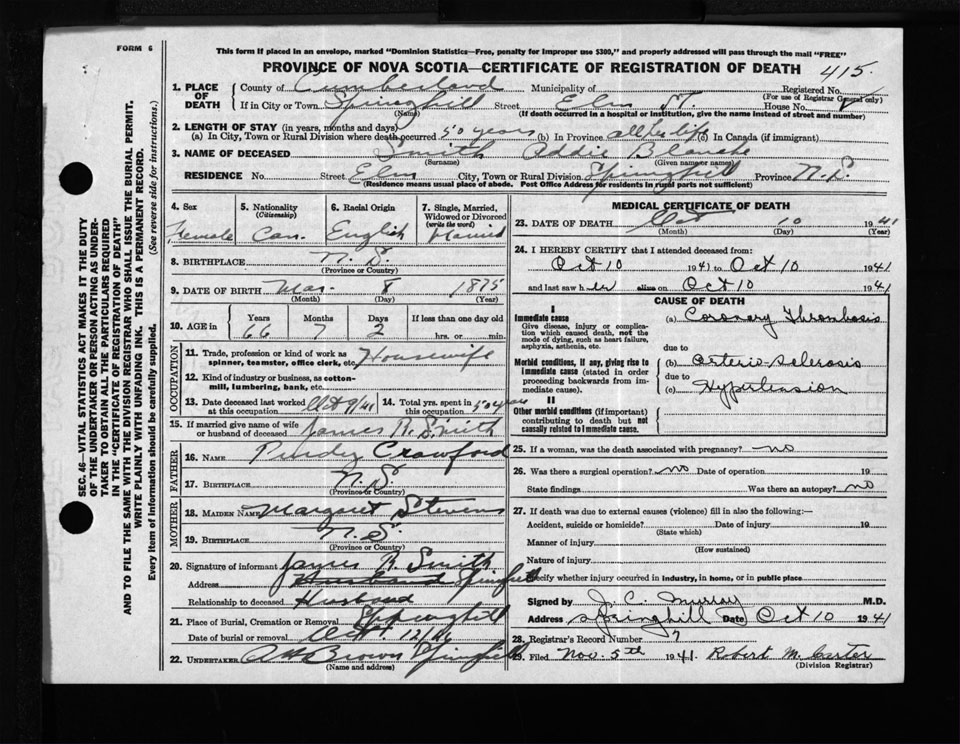 FORM 6
This form if placed in an envelope, marked "Dominion Statistics—Free, penalty for improper use $300," and properly addressed will pass through the mail "FREE"
PROVINCE OF NOVA SCOTIA—CERTIFICATE OF REGISTRATION OF DEATH 415
SEC. 46—VITAL STATISTICS ACT MAKES IT THE DUTY
OF THE UNDERTAKER OR PERSON ACTING AS UNDER-
TAKER TO OBTAIN ALL THE PARTICULARS REQUIRED
IN THE "CERTIFICATE OF REGISTRATION OF DEATH"
AND TO FILE THE SAME WITH THE DIVISION REGISTRAR WHO SHALL ISSUE THE BURIAL PERMIT.
WRITE PLAINLY WITH UNFADING INK. THIS IS A PERMANENT RECORD.
Every item of information should be carefully supplied. (See reverse side for instructions.)
1. PLACE OF DEATH County of Cumberland Municipality of Registered No.
(For use of Registrar General only)
If in City or Town Springhill Street Elm St. House No.
(Name) (If death occurred in a hospital or institution, give the name instead of street and number)
2. LENGTH OF STAY (in years, months and days)
(a) In City, Town or Rural Division where death occurred 50 years (b) In Province all her life (c) In Canada (if immigrant)
3. NAME OF DECEASED Smith Addie Blanche
(Surname) (Given name or name)
RESIDENCE No. Street Elm City, Town or Rural Division Springhill Province N.S.
(Residence means usual place of abode. Post Office Address for residents in rural parts not sufficient)
4. Sex Female
5. Nationality (Citizenship) Can.
6. Racial Origin English
7. Single, Married, Widowed or Divorced (write the word) Married
8. BIRTHPLACE N.S.
(Province or Country)
9. DATE OF BIRTH Mar. 8 1875
(Month) (Day) (Year)
10. AGE in Years 66 Months 7 Days 2 If less than one day old hrs. or min.
OCCUPATION
11. Trade, profession or kind of work as spinner, teamster, office clerk, etc. Housewife
12. Kind of industry or business, as cotton-mill, lumbering, bank, etc.
13. Date deceased last worked at this occupation Oct 9/41 14. Total yrs. spent in this occupation 50 years
15. If married give name of wife or husband of deceased James R. Smith
FATHER
16. NAME Crawford
17. BIRTHPLACE N.S.
(Province or Country)
MOTHER
18. MAIDEN NAME Margaret Stevens
19. BIRTHPLACE N.S.
(Province or Country)
20. Signature of informant James R. Smith
Address Husband Springhill
Relationship to deceased Husband
21. Place of Burial, Cremation or Removal Springhill
Date of burial or removal Oct. 12/
22. UNDERTAKER Brown Springhill
(Name and address)
MEDICAL CERTIFICATE OF DEATH
23. DATE OF DEATH Oct 10 1941
(Month) (Day) (Year)
24. I HEREBY CERTIFY that I attended deceased from:
Oct 10 1941 to Oct 10 1941
and last saw her alive on Oct 10 1941
CAUSE OF DEATH
I
Immediate cause
Give disease, injury or complication which caused death, not the mode of dying, such as heart failure, asphyxia, asthenia, etc.
(a) Coronary Thrombosis
due to
Morbid conditions, if any, giving rise to immediate cause (stated in order proceeding backwards from immediate cause).
(b) Arterio-sclerosis
due to
(c) Hypertension
II
Other morbid conditions (if important) contributing to death but not causally related to immediate cause.
25. If a woman, was the death associated with pregnancy? no
26. Was there a surgical operation? no Date of operation 19
State findings Was there an autopsy? no
27. If death was due to external causes (violence) fill in also the following:—
Accident, suicide or homicide? Date of injury 19
(State which)
Manner of injury
(How sustained)
Nature of injury
Specify whether injury occurred in industry, in home, or in public place
Signed by J. C. Murray M.D.
Address Springhill Date Oct 10 1941
28. Registrar's Record Number 7
29. Filed Nov. 5th 1941. Robert M. Carter
(Division Registrar)